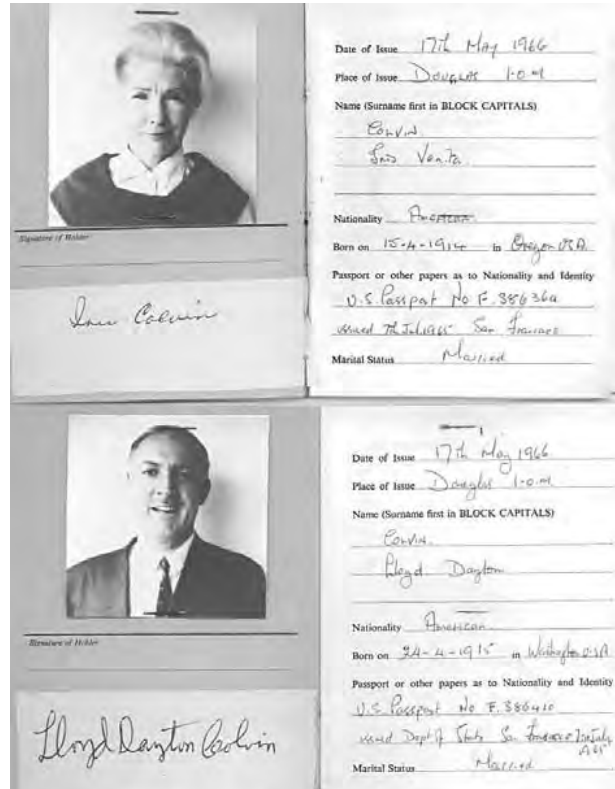 Date of Issue 17th May 1966
Place of Issue Douglas I.O.M
Name (Surname first in BLOCK CAPITALS)
Colvin
Iris Venita
Nationality American
Born on 15-4-1914 in Oregon USA
Passport or other papers as to Nationality and Identity
U.S Passport No F.
issued 7th Jul 1965 San Francisco
Marital Status Married
Signature of Holder
Iris Colvin
Date of Issue 17th May 1966
Place of Issue Douglas I.O.M
Name (Surname first in BLOCK CAPITALS)
Colvin
Lloyd Dayton
Nationality American
Born on 24-4-1915 in Washington USA
Passport or other papers as to Nationality and Identity
U.S. Passport No F. 386410
issued Dept of State San Francisco July
Marital Status Married
Signature of Holder
Lloyd Dayton Colvin